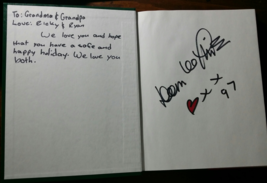 To: Grandma & Grandpa
Love: Ricky & Ryan
We love you and hope
that you have a safe and
happy holiday. We love you
both.
x x x
97